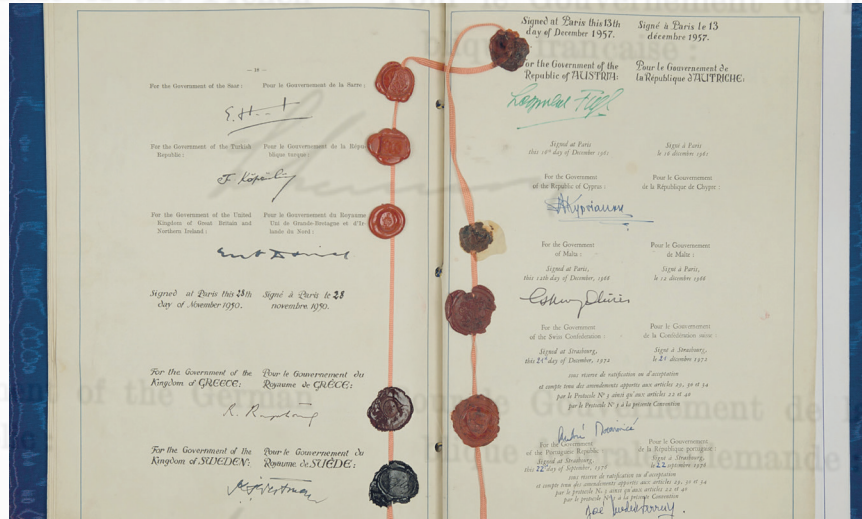 — 18 —
For the Government of the Saar : Pour le Gouvernement de la Sarre :
E. H
For the Government of the Turkish Republic : Pour le Gouvernement de la Répu-
blique turque :
F. Köprülü
For the Government of the United Kingdom of Great Britain and Northern Ireland :
Pour le Gouvernement du Royaume Uni de Grande-Bretagne et d'Ir-
lande du Nord :
Ernest Davies
Signed at Paris this 28th day of November 1950.
Signé à Paris le 28 novembre 1950.
For the Government of the Kingdom of GREECE:
Pour le Gouvernement du Royaume de GRÈCE:
For the Government of the Kingdom of SWEDEN:
Pour le Gouvernement du Royaume de SUÈDE:
Signed at Paris this 13th day of December 1957.
Signé à Paris le 13 décembre 1957.
For the Government of the Republic of AUSTRIA:
Pour le Gouvernement de la République d'AUTRICHE:
Leopold Figl
Signed at Paris
this 16th day of December 1961
Signé à Paris
le 16 décembre 1961
For the Government
of the Republic of Cyprus :
Pour le Gouvernement
de la République de Chypre :
Kyprianou
For the Government
of Malta :
Pour le Gouvernement
de Malte :
Signed at Paris,
this 12th day of December, 1966
Signé à Paris,
le 12 décembre, 1966
For the Government
of the Swiss Confederation :
Pour le Gouvernement
de la Confédération suisse :
Signed at Strasbourg,
this 21st day of December, 1972
Signé à Strasbourg,
le 21 décembre 1972
sous réserve de ratification ou d'acceptation
et compte tenu des amendements apportés aux articles 29, 30 et 34
par le Protocole N° 3 ainsi qu'aux articles 22 et 40
par le Protocole N° 5 à la présente Convention
For the Government
of the Portuguese Republic
Pour le Gouvernement
de la République portugaise
Signed at Strasbourg
this 22nd day of September, 1976
Signé à Strasbourg
le 22 septembre 1976
sous réserve de ratification ou d'acceptation
et compte tenu des amendements apportés aux articles 29, 30 et 34
par le Protocole N° 3 ainsi qu'aux articles 22 et 40
par le Protocole N° 5 à la présente Convention